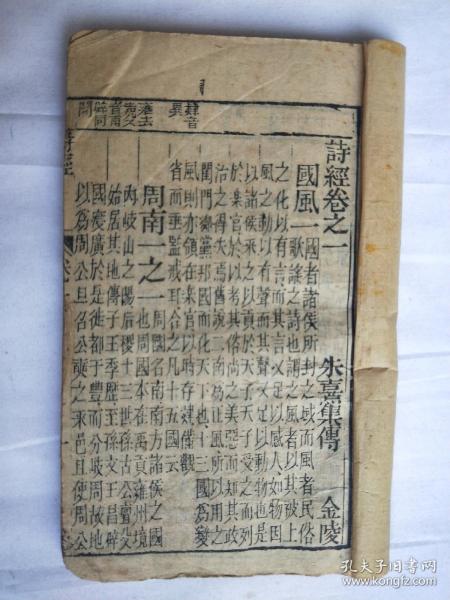 詩經卷之一 朱熹集傳 金陵
國風一 國者諸侯所封之域而風者民俗
歌謠之詩也謂之風者以其被上
之化以有言而其言又足以感人如物因
風之動以有聲而其聲又足以動物也是
以諸侯采之以貢於天子天子受之而列
於樂官於以考其俗尚之美惡而知其政
治之得失焉舊說二南為正風所以用之
閨門鄉黨邦國而化天下也十三國為變
風則亦領在樂官以時存肄備觀
省而垂監戒耳合之凡十五國云
周南一之一 周國名南南方諸侯之國
也周國本在禹貢雍州境
內岐山之陽后稷十三世孫古公亶父
始居其地傳子王季歷至孫文王昌辟
國寖廣於是徙都于豐而分岐周故地
以為周公旦召公奭之采邑且使周公
詩經
孔夫子旧书网